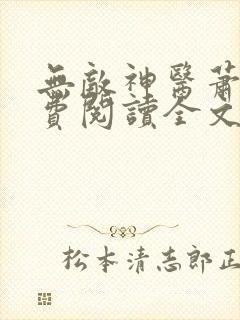 無敵神醫蕭
費閱讀全文
松本清志郎正